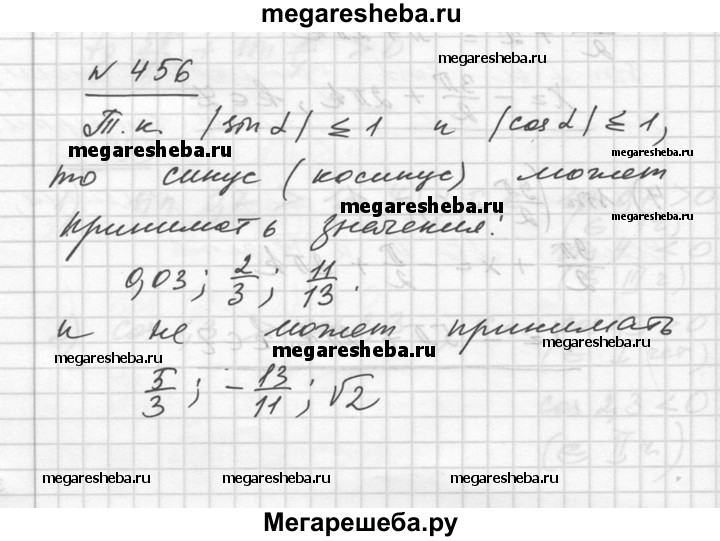 megaresheba.ru
№ 456
megaresheba.ru
Т.к. |sin α| ≤ 1 и |cos α| ≤ 1,
megaresheba.ru megaresheba.ru
то синус (косинус) может
megaresheba.ru megaresheba.ru
принимать значения:
0,03; 2/3; 11/13.
и не может принимать
megaresheba.ru megaresheba.ru megaresheba.ru
5/3; -13/11; √2
megaresheba.ru megaresheba.ru megaresheba.ru
Мегарешеба.ру